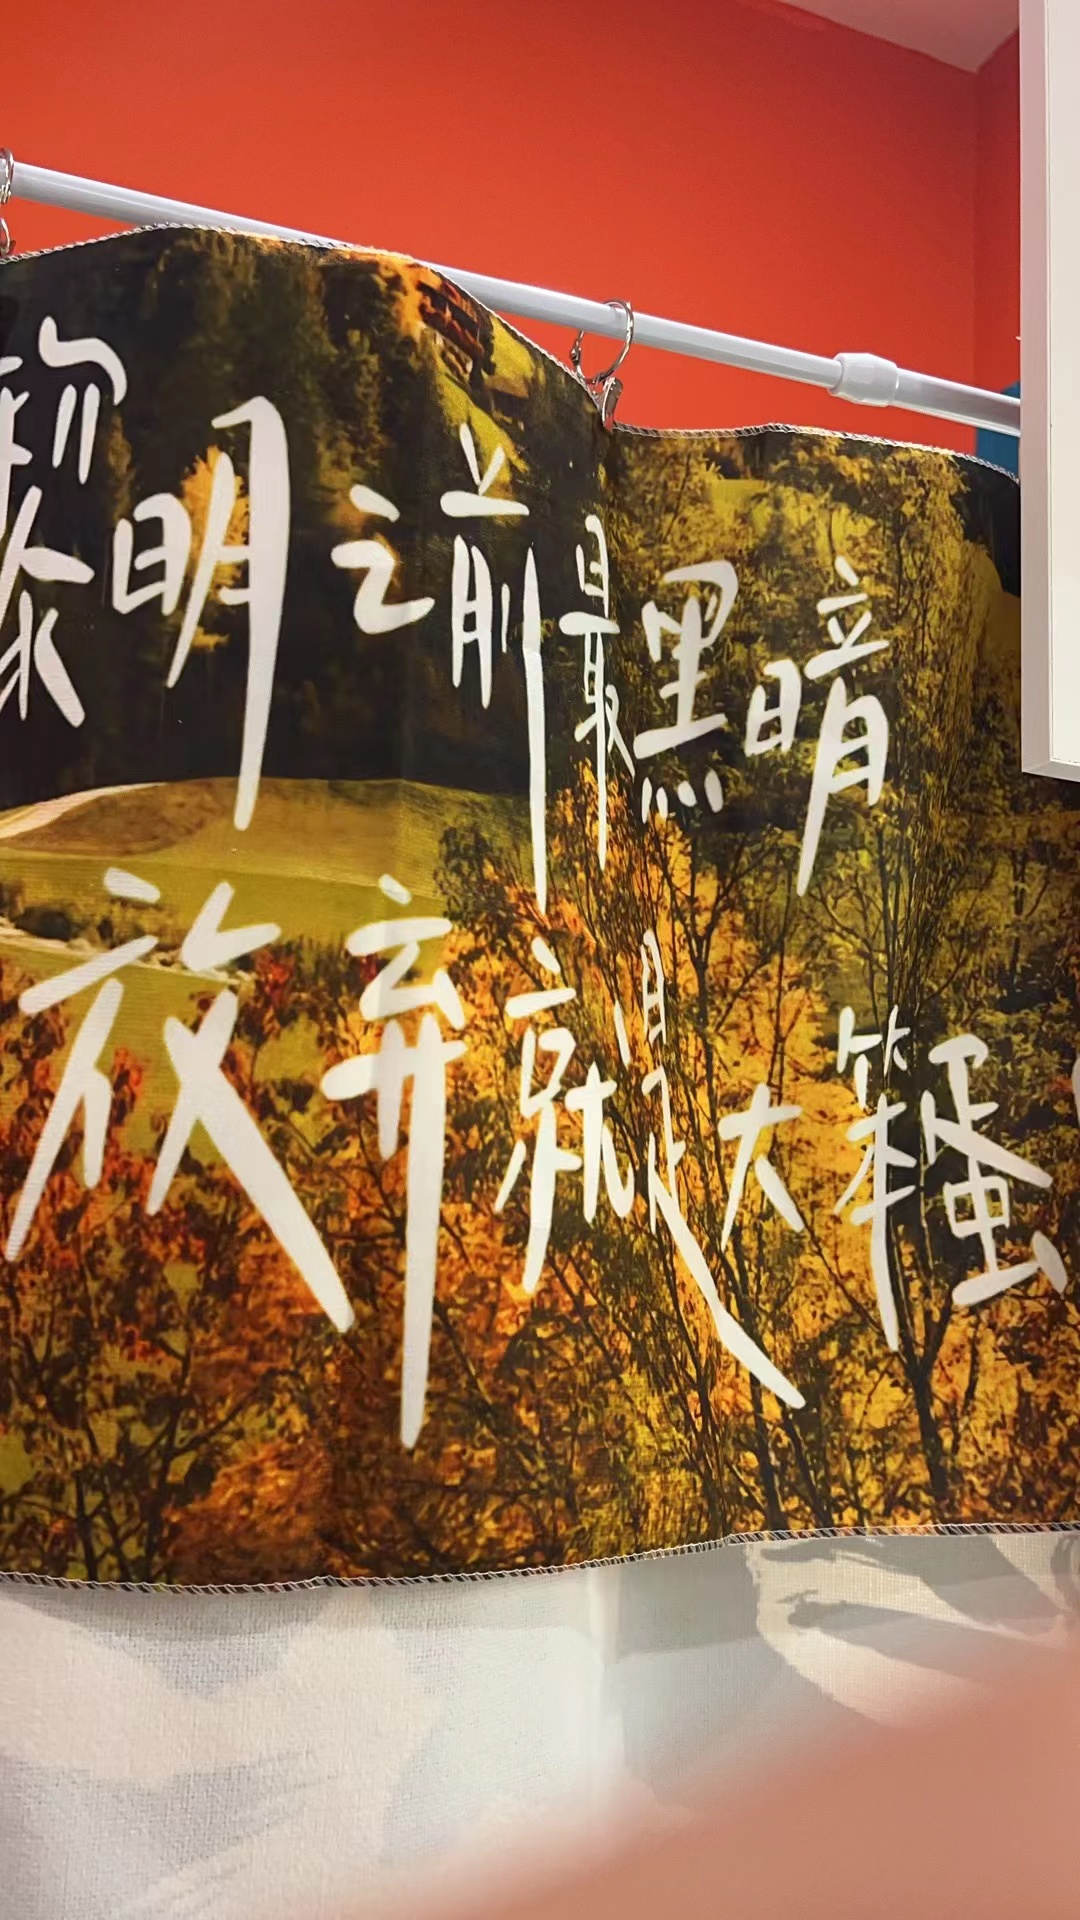 黎明之前最黑暗
放弃就是大笨蛋